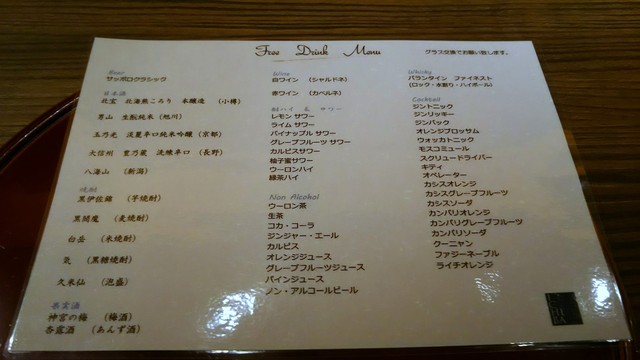 Free Drink Menu
グラス交換でお願い致します。
Beer
サッポロクラシック
日本酒
北宝 北海熊ころり 本醸造 (小樽)
男山 生酛純米 (旭川)
玉乃光 淡麗辛口純米吟醸 (京都)
大信州 里乃蔵 洗練辛口 (長野)
八海山 (新潟)
焼酎
黒伊佐錦 (芋焼酎)
黒閻魔 (麦焼酎)
白岳 (米焼酎)
(黒糖焼酎)
久米仙 (泡盛)
果実酒
神宮の梅 (梅酒)
杏露酒 (あんず酒)
Wine
白ワイン (シャルドネ)
赤ワイン (カベルネ)
酎ハイ & サワー
レモン サワー
ライム サワー
パイナップル サワー
グレープフルーツ サワー
カルピスサワー
柚子蜜サワー
ウーロンハイ
緑茶ハイ
Non Alcohol
ウーロン茶
生茶
コカ・コーラ
ジンジャー・エール
カルピス
オレンジジュース
グレープフルーツジュース
パインジュース
ノン・アルコールビール
Whisky
バランタイン ファイネスト
(ロック・水割り・ハイボール)
Cocktail
ジントニック
ジンリッキー
ジンバック
オレンジブロッサム
ウォッカトニック
モスコミュール
スクリュードライバー
キティ
オペレーター
カシスオレンジ
カシスグレープフルーツ
カシスソーダ
カンパリオレンジ
カンパリグレープフルーツ
カンパリソーダ
クーニャン
ファジーネーブル
ライチオレンジ